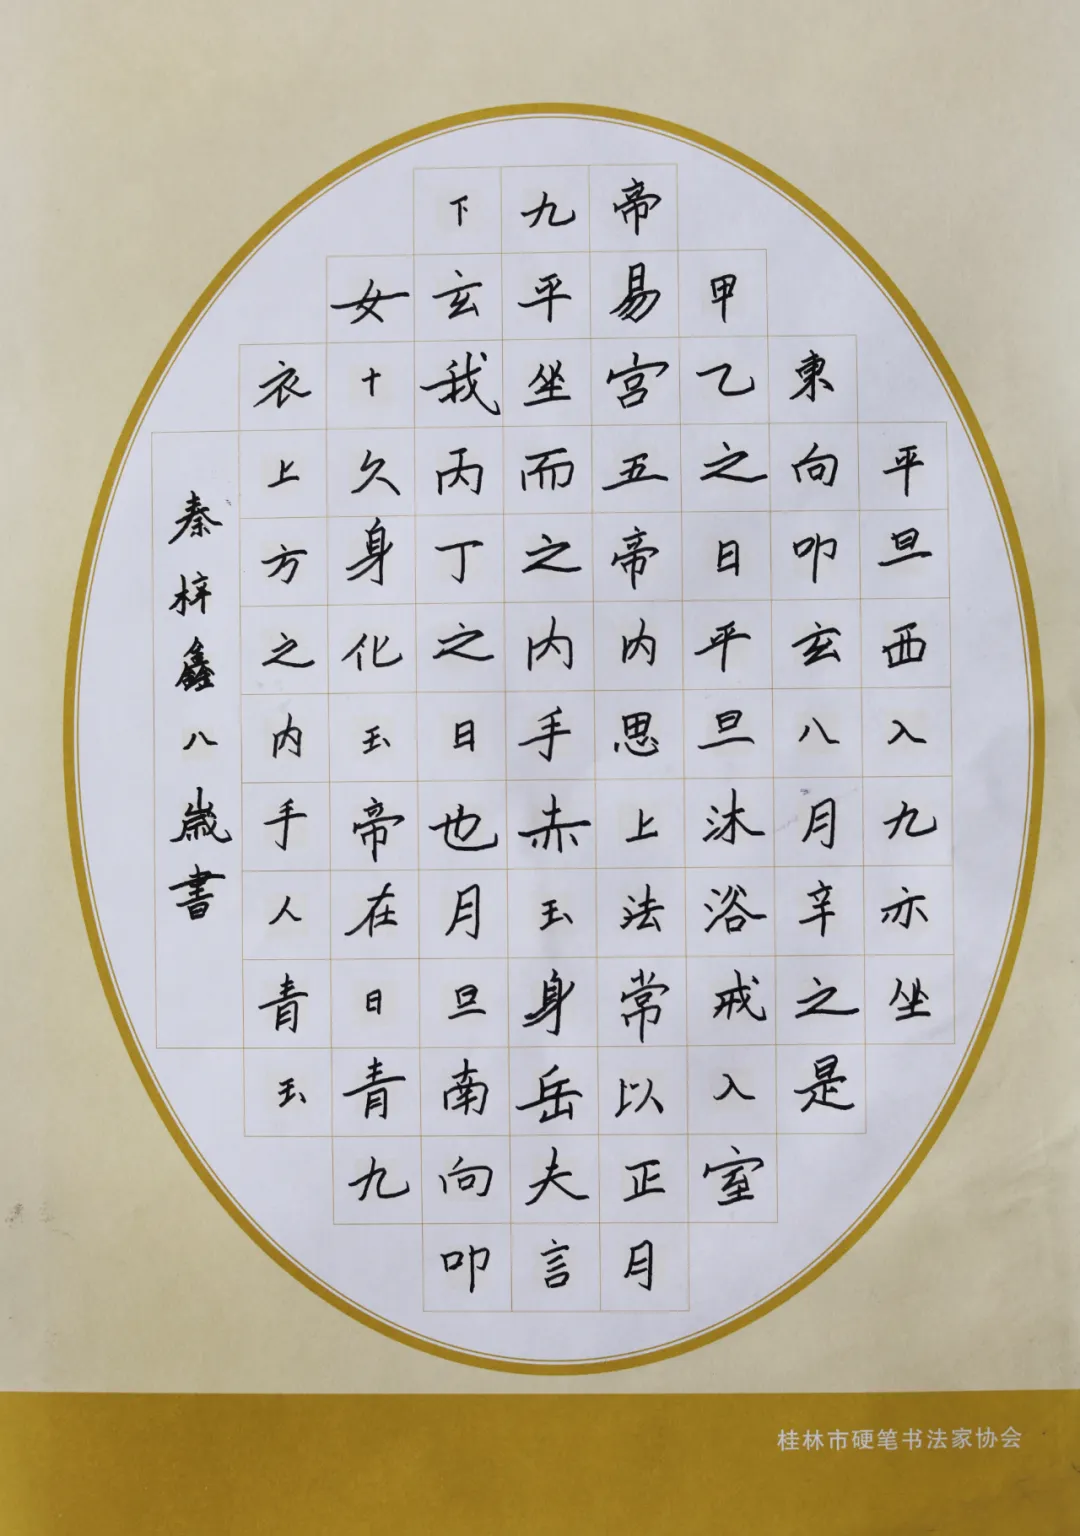 平旦西入九亦坐
東向叩玄八月辛之是
甲乙之日平旦沐浴戒入室
帝易宫五帝内思上法常以正月
九平坐而之内手赤玉身岳夫言
下玄我丙丁之日也月旦南向叩
女十久身化玉帝在日青九
衣上方之内手人青玉
秦梓鑫八歲書
桂林市硬笔书法家协会